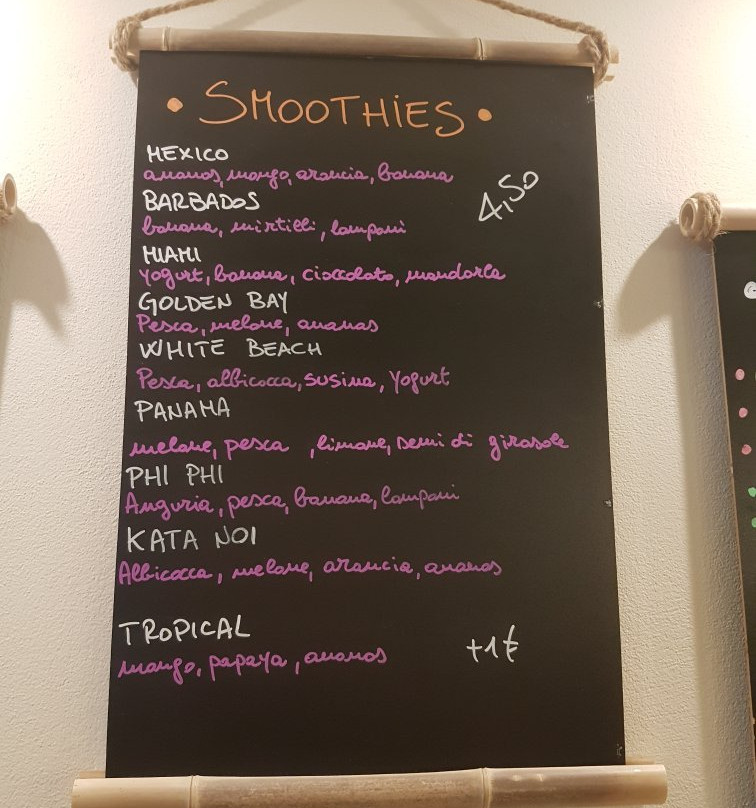 • SMOOTHIES •
MEXICO
ananas, mango, arancia, banana
4,50
BARBADOS
banana, mirtilli, lamponi
MIAMI
Yogurt, banana, cioccolato, mandorle
GOLDEN BAY
Pesca, melone, ananas
WHITE BEACH
Pesca, albicocca, susina, Yogurt
PANAMA
melone, pesca, limone, semi di girasole
PHI PHI
Anguria, pesca, banana, lamponi
KATA NOI
Albicocca, melone, arancia, ananas
TROPICAL
mango, papaya, ananas
+1€